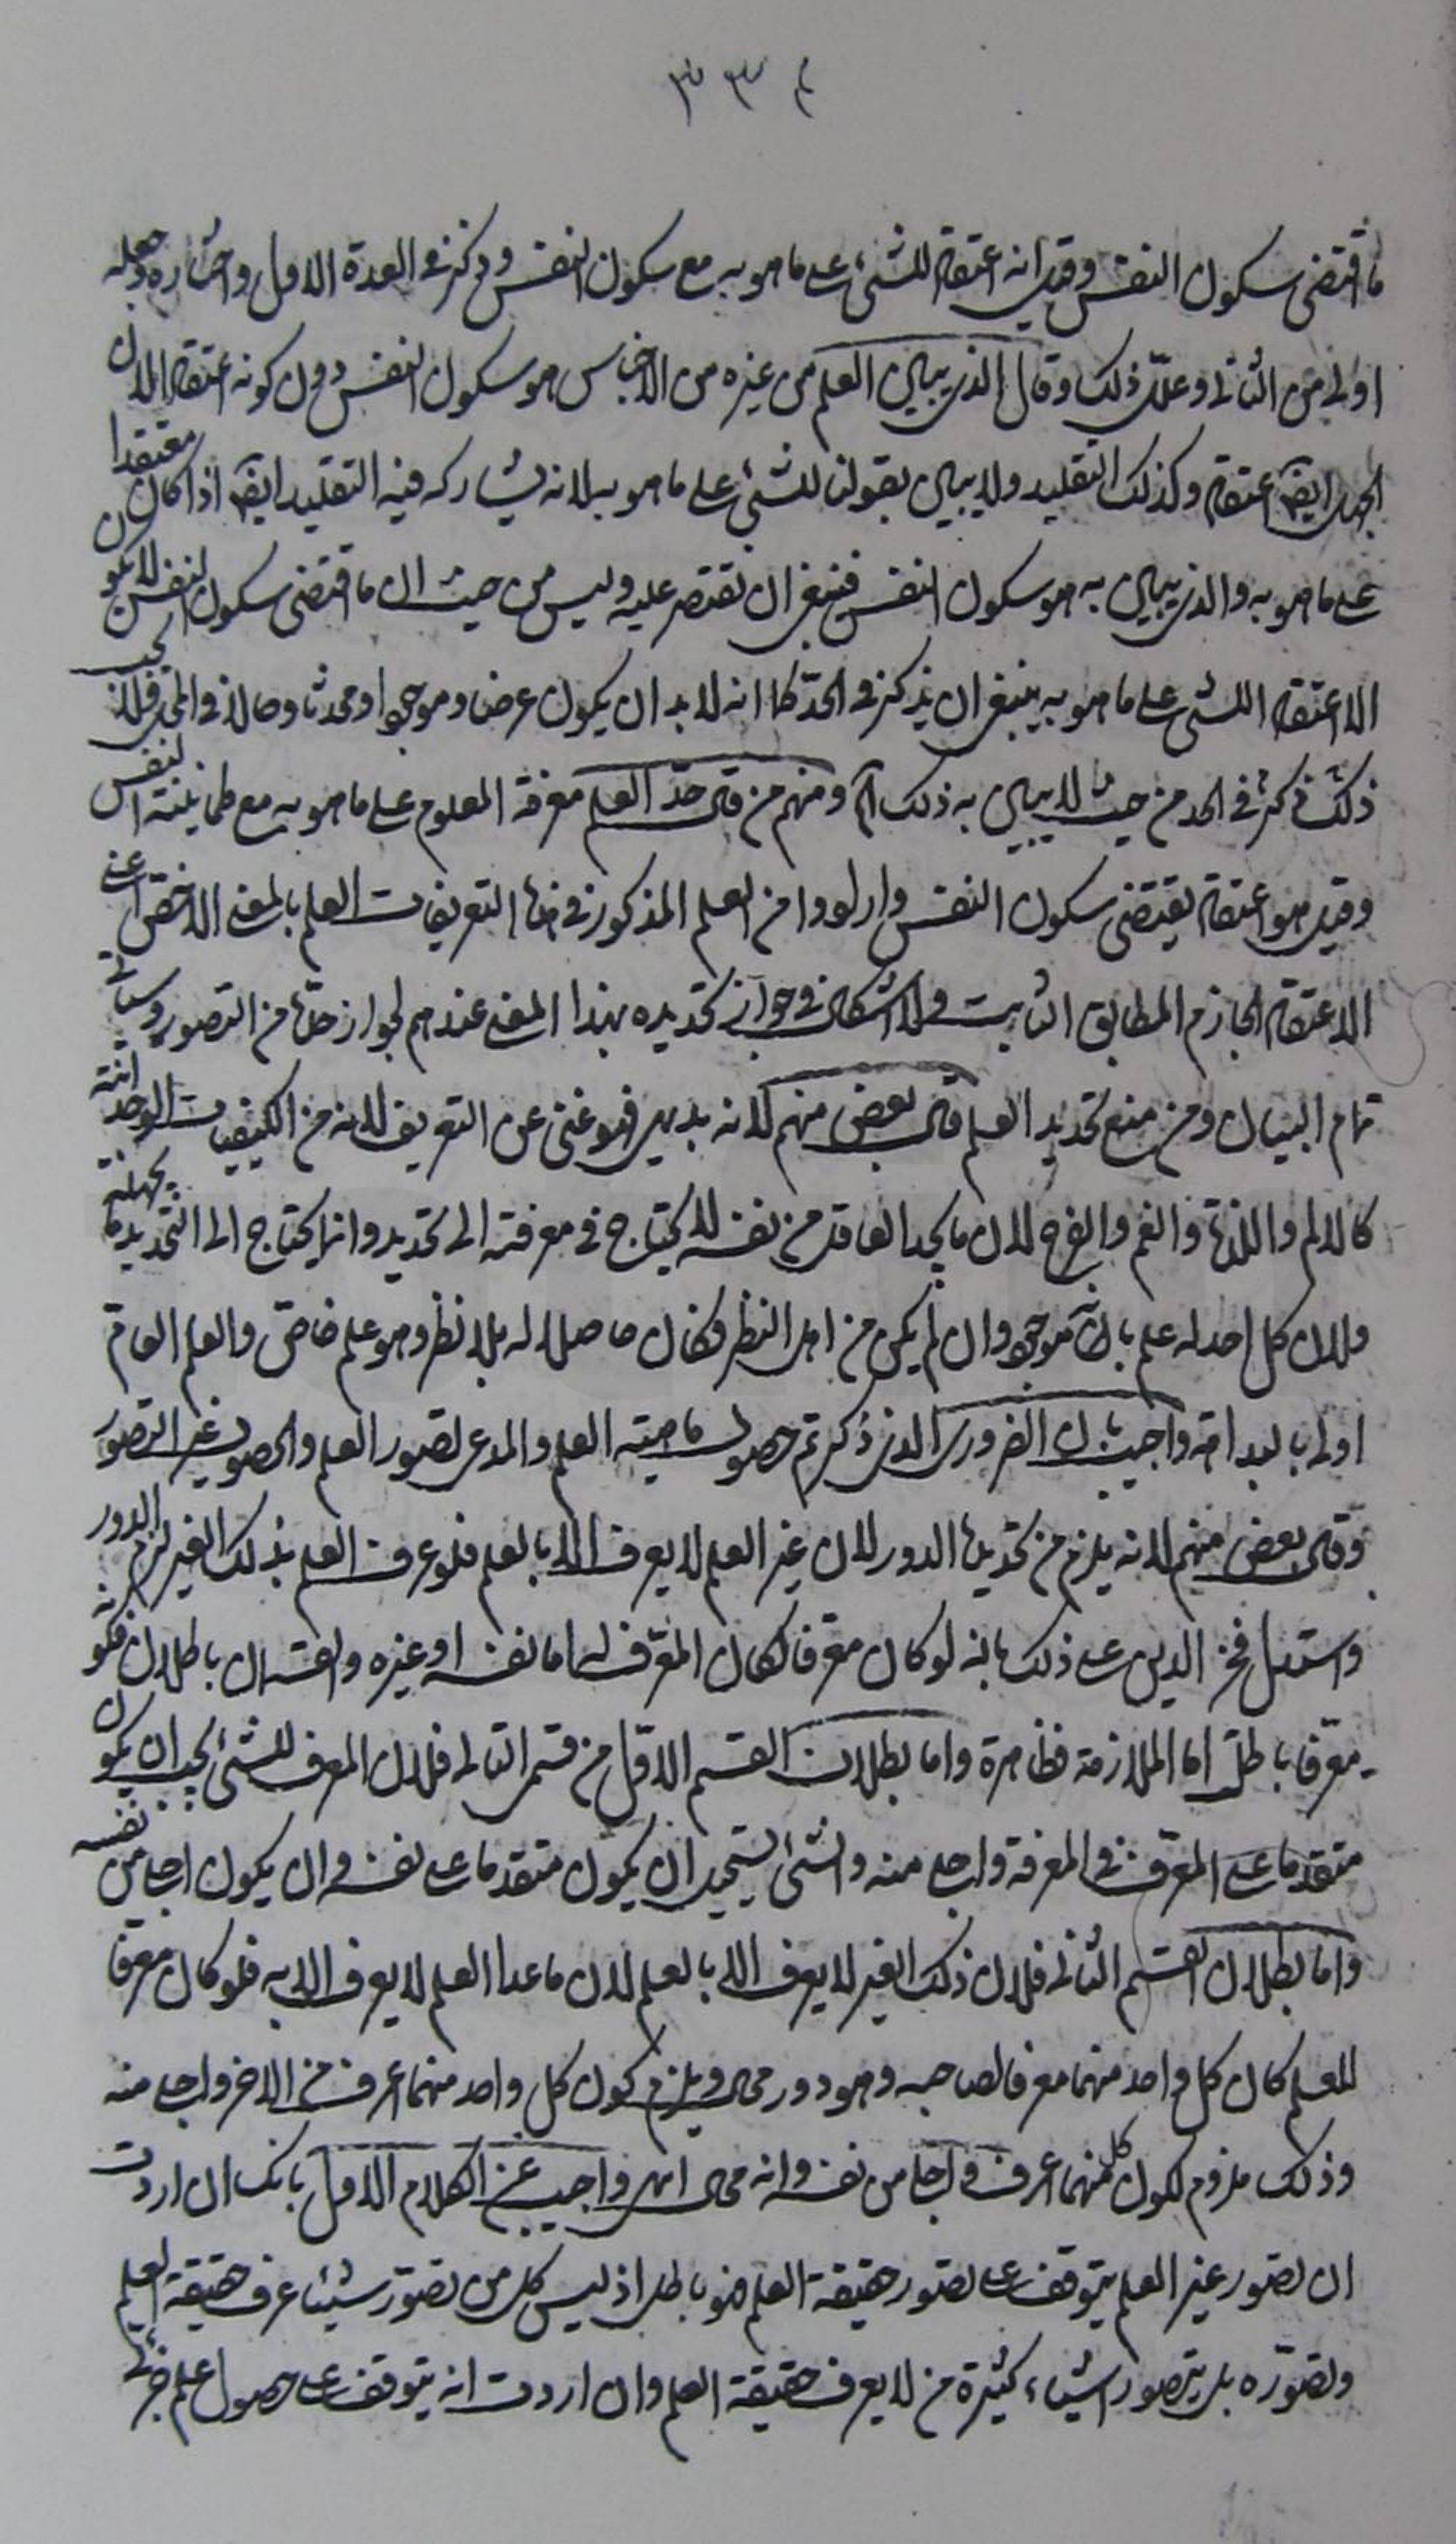 ٣٣٤
ما اقتضى سكون النفس وقيل انه اعتقاد للشئ على ما هو به مع سكون النفس وذكره في العدة الاول واختاره وجعله
اولى من الثاني وعلل ذلك وقال الذي يبان العلم من غيره من الاجناس هو سكون النفس دون كونه اعتقادا لان
الجهل ايضا اعتقاد وكذلك التقليد ولا يبان بقولنا للشئ على ما هو به لانه يشاركه فيه التقليد ايضا اذا كان معتقدا
على ما هو به والذي يبان به هو سكون النفس فينبغي ان نقتصر عليه وليس من حيث ان ما اقتضى سكون النفس لا يكون
الا اعتقادا للشئ على ما هو به ينبغي ان يذكر في الحد كما انه لا بد ان يكون عرضا وموجودا ومحدثا وحالا في المحل فلا يجب
ذكر ذلك في الحد من حيث لا يبان به ذلك آه ومنهم من قال حد العلم معرفة المعلوم على ما هو به مع طمانينة النفس
وقيل هو اعتقاد يقتضي سكون النفس وارادوا من العلم المذكور في هذه التعريفات العلم بالمعنى الاخص اعني
الاعتقاد الجازم المطابق الثابت ولا اشكال في جواز تحديده بهذا المعنى عندهم لجواز حده من التصور وسياتي
تمام البيان ومن منع تحديد العلم قال بعض منهم لانه بديهي فهو غني عن التعريف لانه من الكيفيات الوجدانية
كالالم واللذة والغم والفرح لان ما يجد العاقل من نفسه لا يحتاج في معرفته الى تحديد وانما يحتاج الى التحديد ما يجهله
ولان كل احد له علم بانه موجود وان لم يكن من اهل النظر فكان حاصلا له بلا نظر وهو علم خاص والعلم العام
اولى بالبداهة واجيب بان الضروري الذي ذكرتم حصول ماهية العلم والمدعى تصور العلم والحصول غير التصور
وقال بعض منهم لانه يلزم من تحديده الدور لان غير العلم لا يعرف الا بالعلم فلو عرف العلم بذلك الغير لزم الدور
واستدل فخر الدين على ذلك بانه لو كان معرفا لكان المعرف له اما نفسه او غيره والقسمان باطلان فكونه
معرفا باطل اما الملازمة فظاهرة واما بطلان القسم الاول من قسمي التالي فلان المعرف للشئ يجب ان يكون
متقدما على المعرف في المعرفة واجلى منه والشئ يستحيل ان يكون متقدما على نفسه وان يكون اجلى من نفسه
واما بطلان القسم الثاني فلان ذلك الغير لا يعرف الا بالعلم لان ما عدا العلم لا يعرف الا به فلو كان معرفا
للعلم كان كل واحد منهما معرفا لصاحبه وهو دور محال ويلزم كون كل واحد منهما اعرف من الاخر واجلى منه
وذلك ملزوم لكون كل منهما اعرف واجلى من نفسه وانه محال انتهى واجيب عن الكلام الاول بانك ان اردت
ان تصور غير العلم يتوقف على تصور حقيقة العلم فهو باطل اذ ليس كل من تصور شيئا عرف حقيقة العلم
وتصوره بل يتصور اشياء كثيرة من لا يعرف حقيقة العلم وان اردت انه يتوقف على حصول علم جزئي